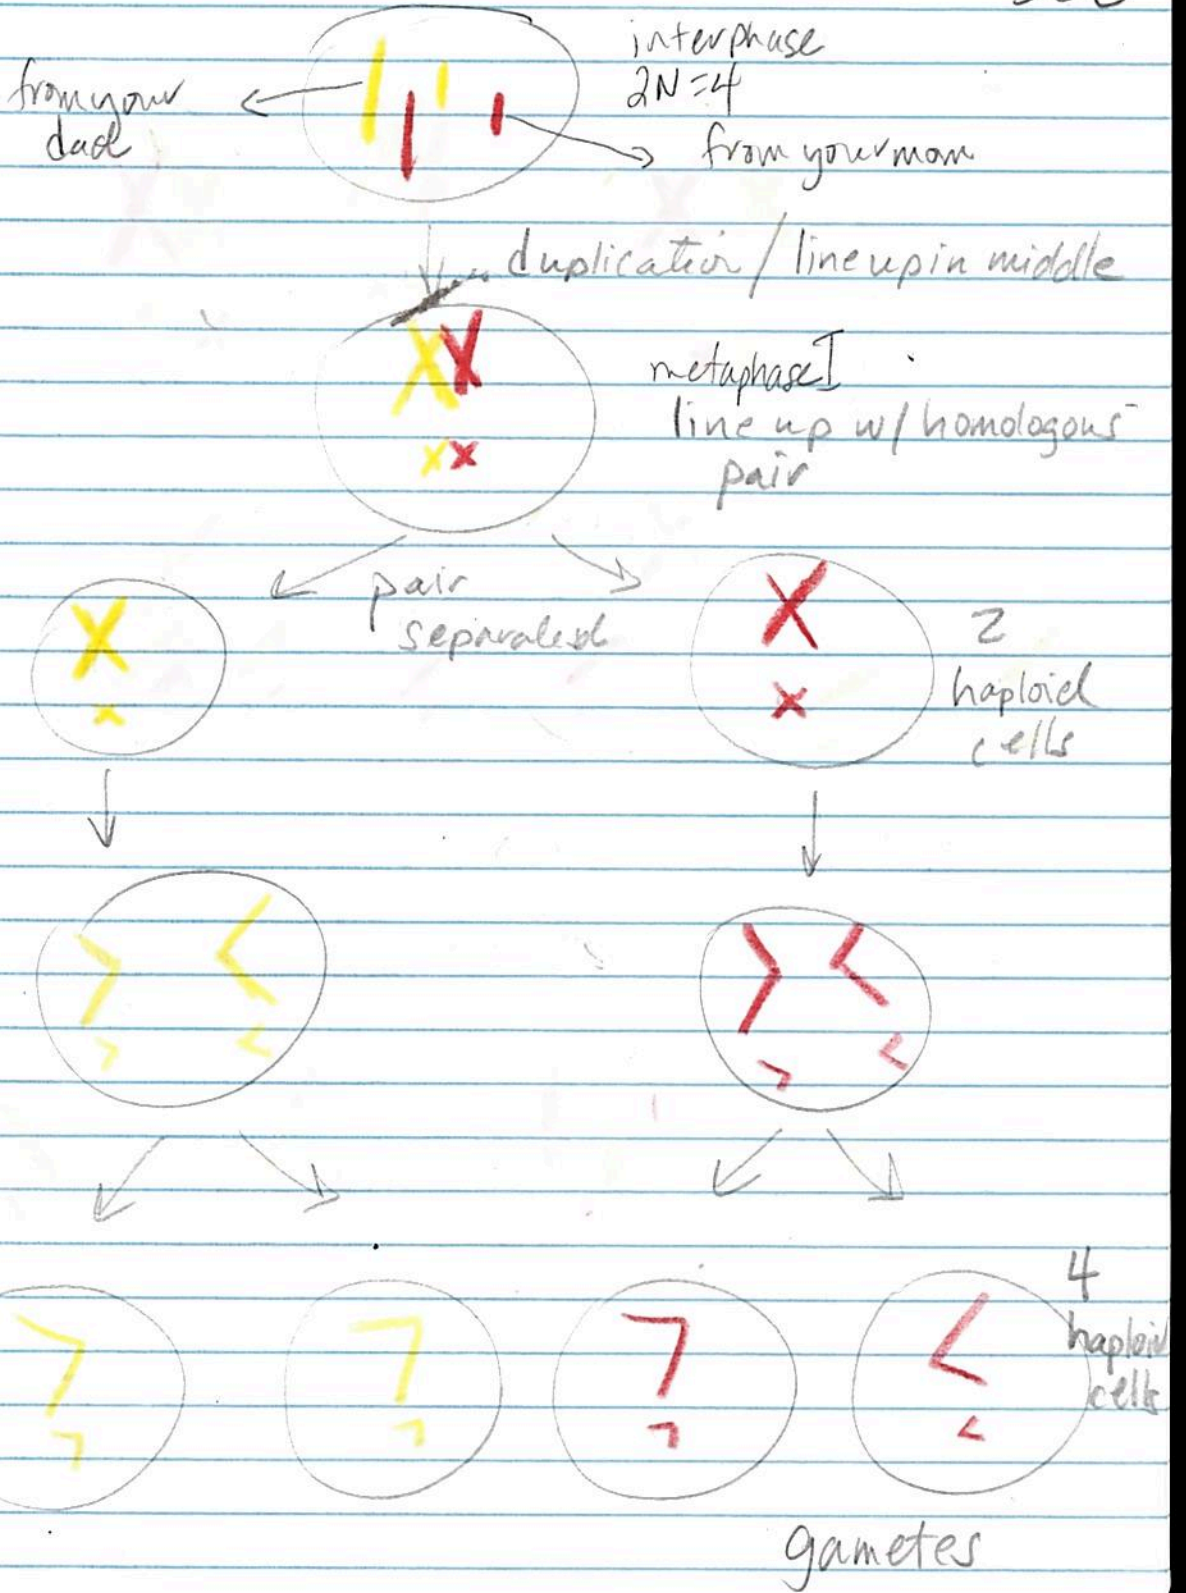 interphase
2N=4
from your
dad
from your mom
duplication / line up in middle
metaphase I
line up w/ homologous
pair
pair
separated
2
haploid
cells
4
haploid
cells
gametes